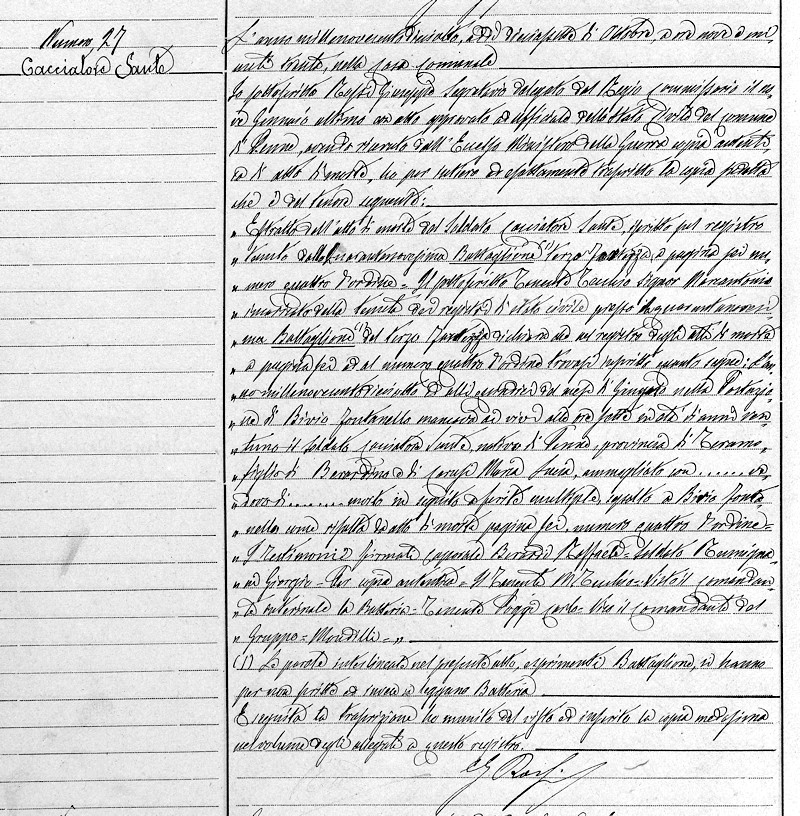 Numero 27
Cacciatore Sante
L'anno millenovecentodiciotto, addì diciassette di Ottobre, a ore nove e mi
nuti trenta, nella Casa Comunale
Io sottoscritto Rossi Giuseppe Segretario delegato dal Regio Commissario il no
ve Gennaio ultimo con atto approvato ad uffiziale dello Stato Civile del comune
di Penne, avendo ricevuto dall'Eccelso Ministero della Guerra copia autenti
ca di atto di morte, ho per intero ed esattamente trascritto la copia predetta
che è del tenore seguente:
" Estratto dell'atto di morte del Soldato Cacciatore Sante, iscritto sul registro
" tenuto dalla quarantanovesima Battaglione (1) terzo Fortezza, a pagina sei nu
" mero quattro d'ordine = Il sottoscritto Tenente Tecchio Signor Marcantonio
" incaricato della tenuta dei registri di stato civile presso la quarantanovesi
" ma Battaglione (1) del terzo Fortezza dichiara che nel registro degli atti di morte
" a pagina sei ed al numero quattro d'ordine trovasi inscritto quanto segue: L'an
" no millenovecentodiciotto ed alli quindici del mese di Giugno nella Postazio
" ne di Bivio Fontanello mancava ai vivi alle ore sette in età di anni ven
" tuno il soldato Cacciatore Sante, nativo di Penne, provincia di Teramo,
" figlio di Berardino e di Carusi Maria Lucia, ammogliato con ....... ve
" dovo di ........ morto in seguito a ferite multiple, sepolto a Bivio Fonta
" nello come risulta da atto di morte pagina sei, numero quattro d'ordine =
" I Testimoni 2 firmati Caporale Berardi Raffaele = Soldato
" Giorgio = Per copia autentica = Il Tenente M. Tecchio = Visto il Comandan
" te interinale la Batteria = Tenente Poggi Carlo = Visto il Comandante del
" Gruppo = Mondelli = "
(1) Le parole interlineate nel presente atto, esprimenti Battaglione, si hanno
per non scritte ed invece si leggano Batteria
Eseguita la trascrizione ho munito del visto ed inserito la copia medesima
nel volume degli allegati a questo registro.
G Rossi